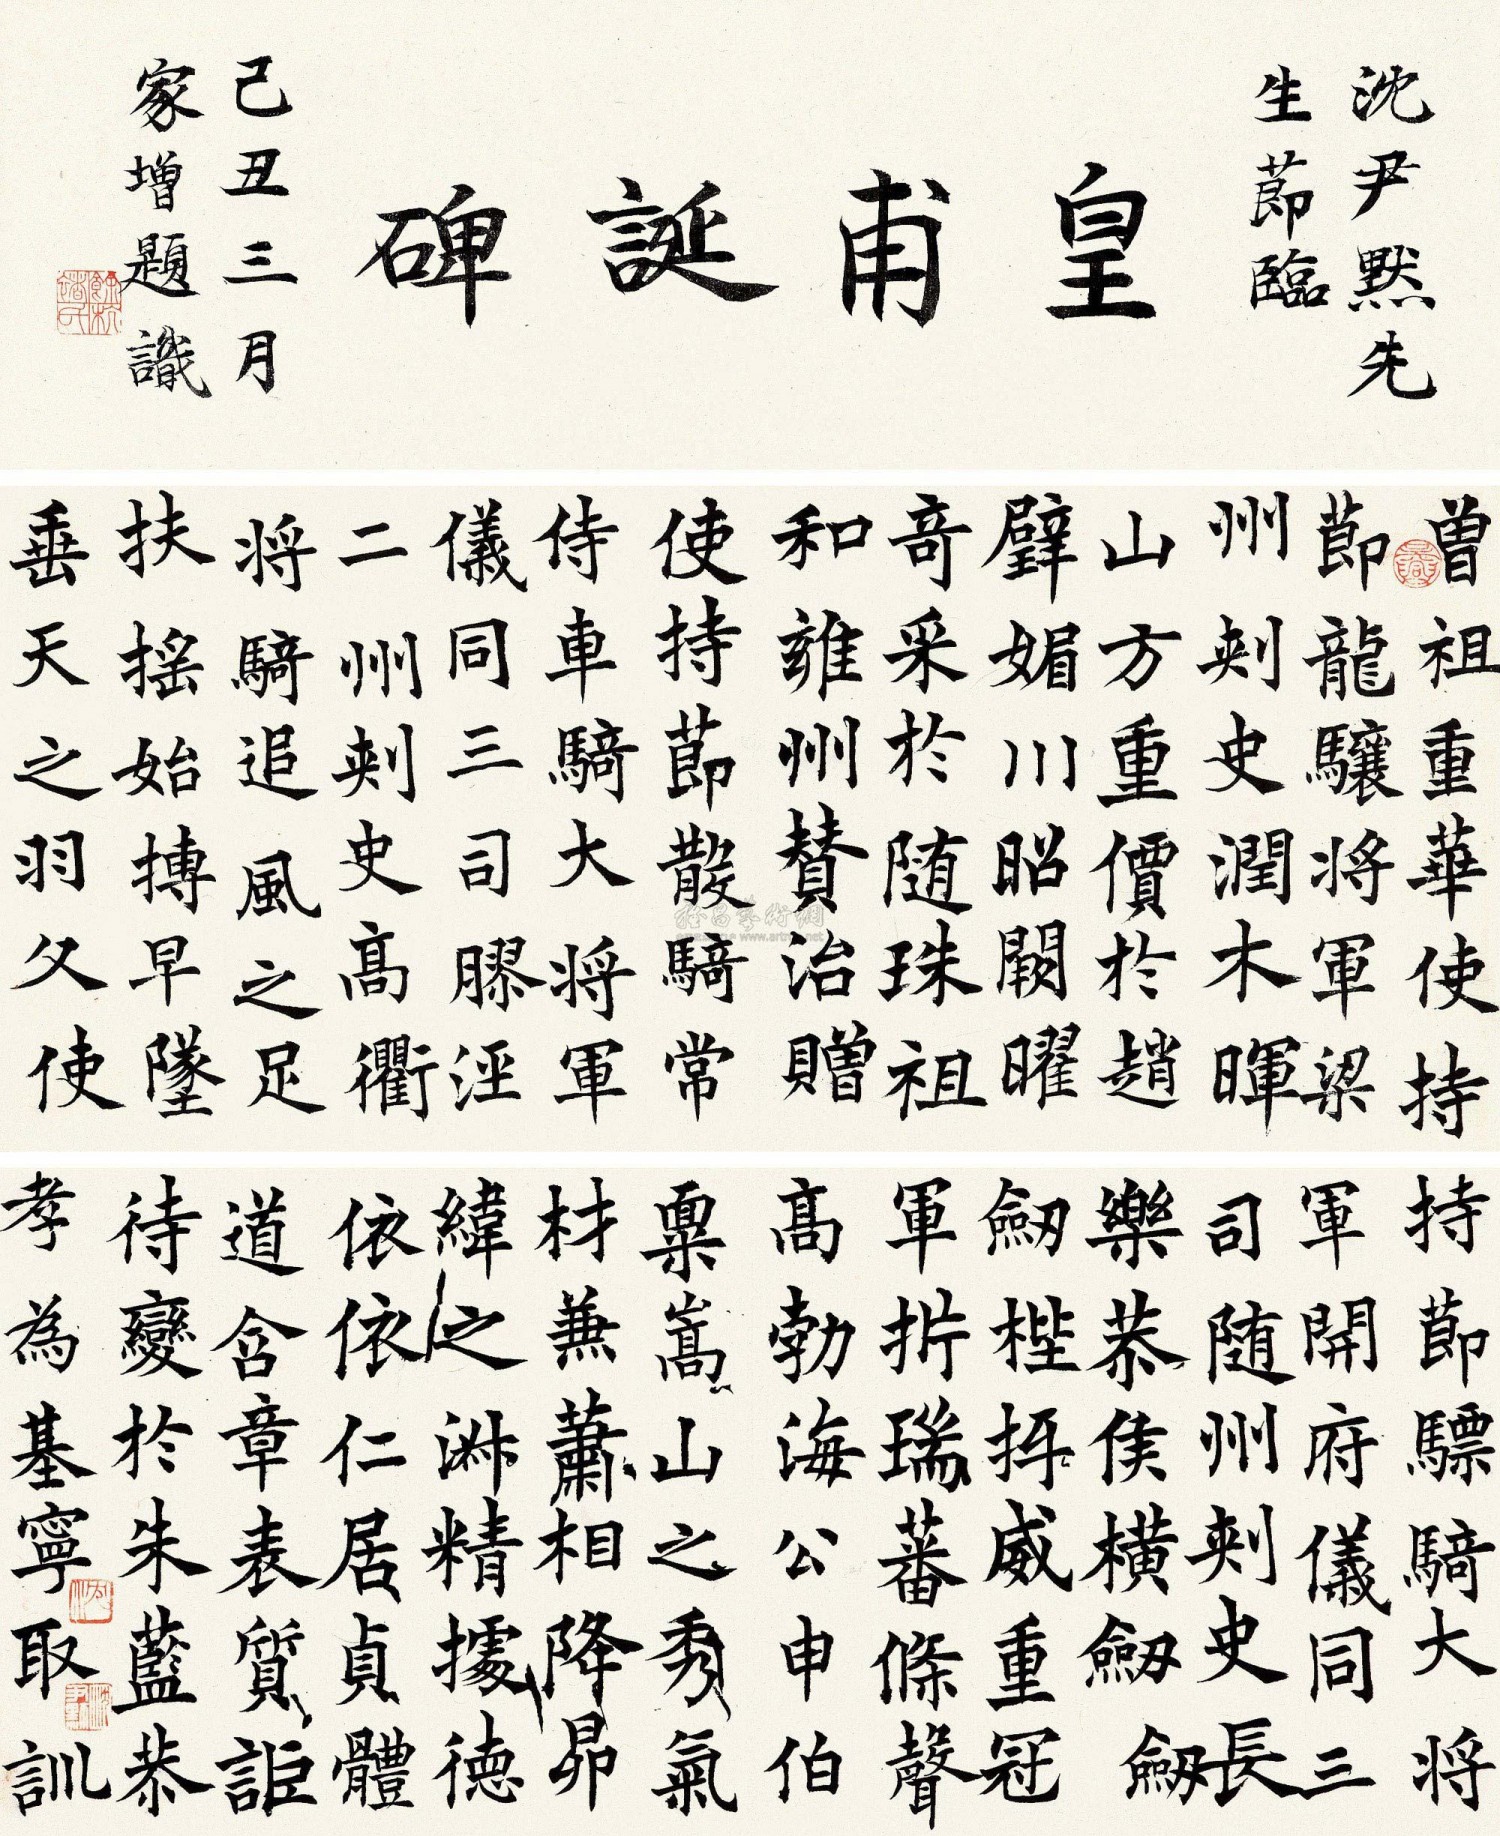 沈尹默先
生節臨
皇甫誕碑
己丑三月
家增題識
曾祖重華使持
節龍驤將軍梁
州刺史潤木暉
山方重價於趙
璧媚川昭闕曜
奇采於随珠祖
和雍州賛治贈
使持節散騎常
侍車騎大將軍
儀同三司膠涇
二州刺史高衢
將騎追風之足
扶搖始摶早墜
垂天之羽父使
持節驃騎大將
軍開府儀同三
司随州刺史長
樂恭侯橫劒劒
劒梐枑威重冠
軍折瑞蕃條聲
高勃海公申伯
稟嵩山之秀氣
材兼蕭相降昴
緯之淋精據德
依依仁居貞體
道含章表質詎
待變於朱藍恭
孝為基寧取訓